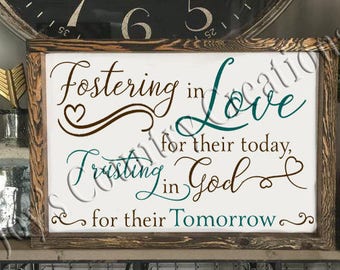 Fostering in Love
for their today,
Trusting in God
for their Tomorrow